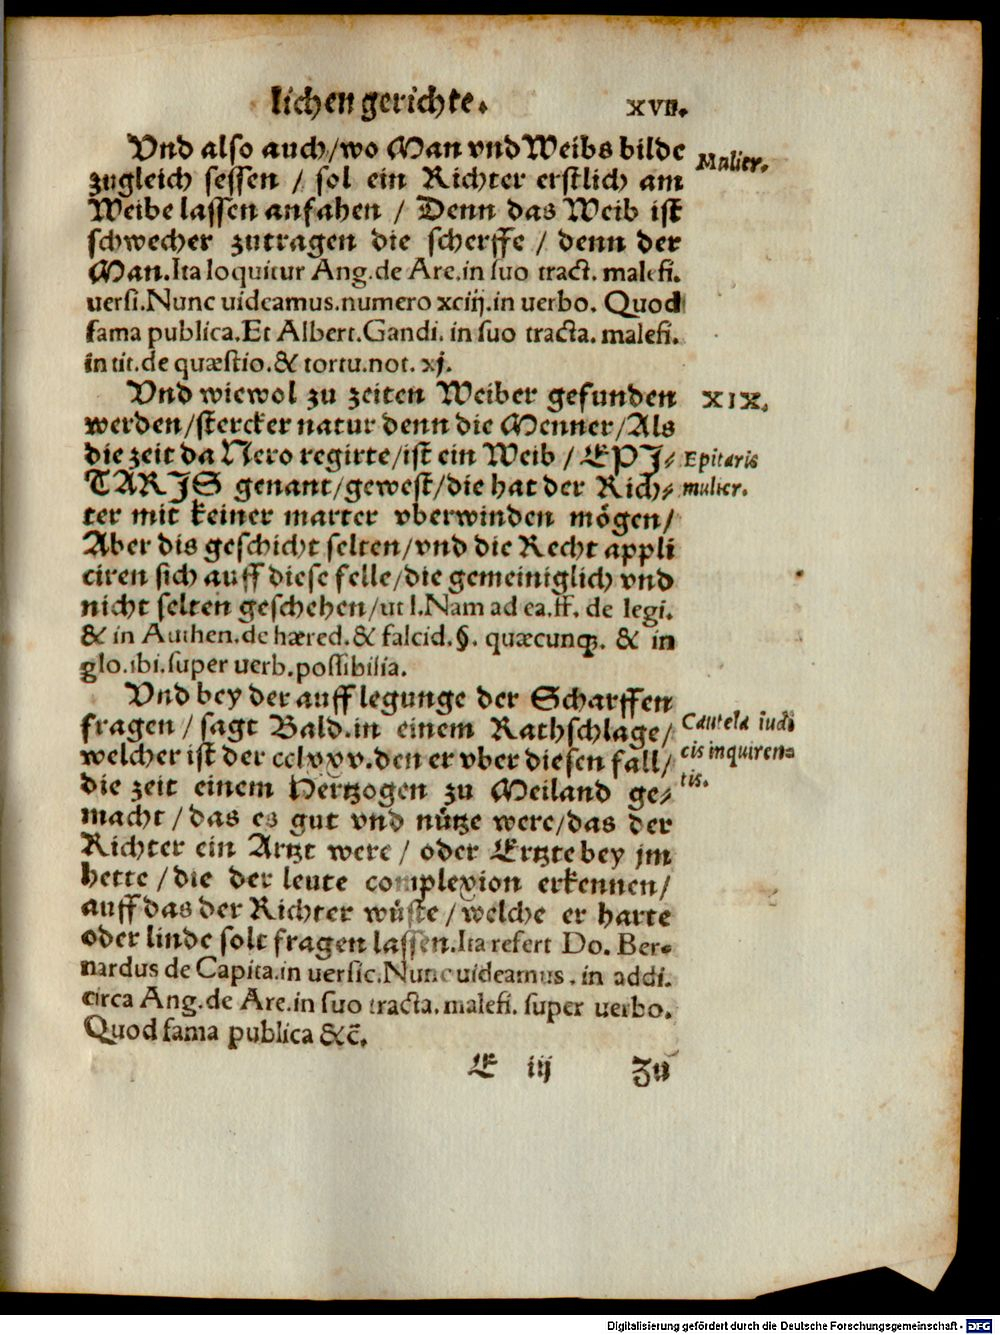 lichen gerichte.
XVII.
Vnd also auch/wo Man vnd Weibs bilde
Mulier.
zugleich sessen / sol ein Richter erstlich am
Weibe lassen anfahen / Denn das Weib ist
schwecher zutragen die scherffe / denn der
Man.Ita loquitur Ang.de Are.in suo tract. malefi.
versi.Nunc uideamus.numero xciij.in uerbo. Quod
fama publica.Et Albert.Gandi. in suo tracta. malefi.
in tit.de quæstio.& tortu.not. xj.
Vnd wiewol zu zeiten Weiber gefunden
XIX.
werden/stercker natur denn die Menner/Als
die zeit da Nero regirte/ist ein Weib / EPI⸗
Epitaris
TARIS genant/gewest/die hat der Rich⸗
mulier.
ter mit keiner marter vberwinden mögen/
Aber dis geschicht selten/vnd die Recht appli
ciren sich auff diese felle/die gemeiniglich vnd
nicht selten geschehen/ut l.Nam ad ea.ff. de legi.
& in Authen.de hæred.& falcid.§. quæcunqꝫ. & in
glo.ibi.super uerb.possibilia.
Vnd bey der aufflegunge der Scharffen
fragen / sagt Bald.in einem Rathschlage/
Cautela iudi
welcher ist der cclxxv.den er vber diesen fall/
cis inquiren⸗
die zeit einem Hertzogen zu Meiland ge⸗
tis.
macht / das es gut vnd nütze were/das der
Richter ein Artzt were / oder Ertzte bey jm
hette / die der leute complexion erkennen/
auff das der Richter wüste / welche er harte
oder linde solt fragen lassen.Ita refert Do. Ber⸗
nardus de Capita.in uersic.Nunc uideamus. in addi.
circa Ang.de Are.in suo tracta.malefi. super uerbo.
Quod fama publica &c̄.
E iij
Zu
Digitalisierung gefördert durch die Deutsche Forschungsgemeinschaft - DFG